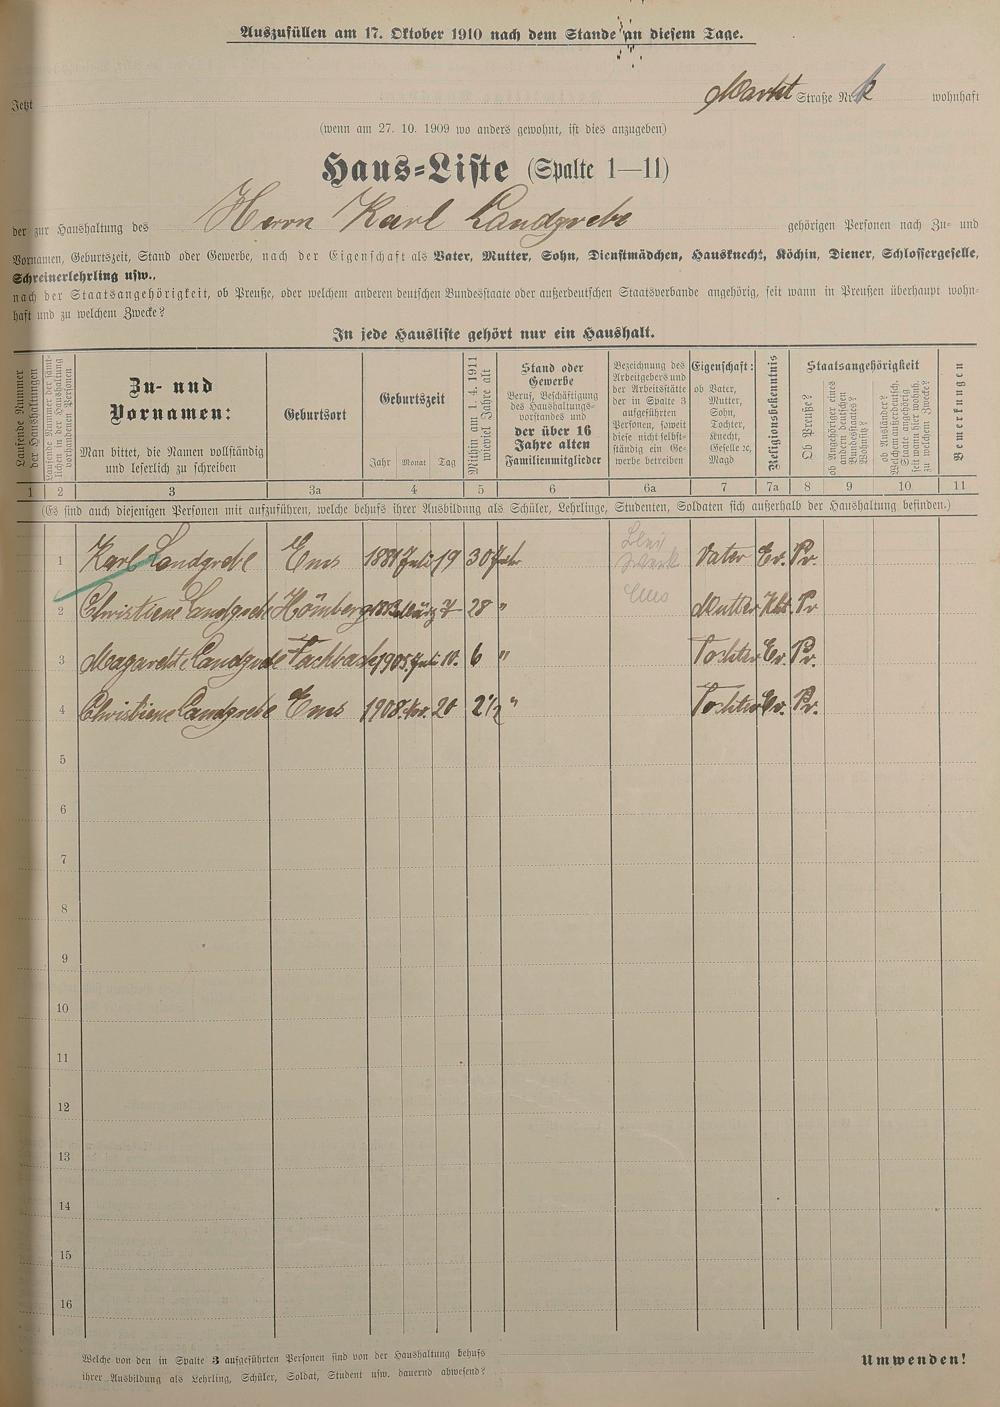 Auszufüllen am 17. Oktober 1910 nach dem Stande an diesem Tage.
Jetzt Markt Straße Nr. wohnhaft
(wenn am 27. 10. 1909 wo anders gewohnt, ist dies anzugeben)
Haus=Liste (Spalte 1—11)
der zur Haushaltung des Herrn Karl Landgrebe gehörigen Personen nach Zu- und
Vornamen, Geburtszeit, Stand oder Gewerbe, nach der Eigenschaft als Vater, Mutter, Sohn, Dienstmädchen, Hausknecht, Köchin, Diener, Schlossergeselle,
Schreinerlehrling usw.,
nach der Staatsangehörigkeit, ob Preuße, oder welchem anderen deutschen Bundesstaate oder außerdeutschen Staatsverbande angehörig, seit wann in Preußen überhaupt wohn-
haft und zu welchem Zwecke?
In jede Hausliste gehört nur ein Haushalt.
Laufende Nummer der Haushaltungen
Laufende Nummer der sämt-
lichen in der Haushaltung
vorhandenen Personen
Zu- und
Vornamen:
Man bittet, die Namen vollständig
und leserlich zu schreiben
Geburtsort
Geburtszeit
Jahr Monat Tag
Mithin am 1. 4. 1911
wieviel Jahre alt
Stand oder
Gewerbe
Beruf, Beschäftigung
des Haushaltungs-
vorstandes und
der über 16
Jahre alten
Familienmitglieder
Bezeichnung des
Arbeitgebers und
der Arbeitsstätte
der in Spalte 3
aufgeführten
Personen, soweit
diese nicht selbst-
ständig ein Ge-
werbe betreiben
Eigenschaft:
ob Vater,
Mutter,
Sohn,
Tochter,
Knecht,
Geselle ꝛc,
Magd
Religionsbekenntnis
Staatsangehörigkeit
Ob Preuße?
ob Angehöriger eines
andern deutschen
Bundesstaates?
Wohnsitz?
ob Ausländer?
Welchem außerdeutsch.
Staate angehörig
seit wann hier wohnh.
zu welchem Zwecke?
Bemerkungen
1 2 3 3a 4 5 6 6a 7 7a 8 9 10 11
(Es sind auch diejenigen Personen mit aufzuführen, welche behufs ihrer Ausbildung als Schüler, Lehrlinge, Studenten, Soldaten sich außerhalb der Haushaltung befinden.)
1 Karl Landgrebe Ems 1881 Juli 19 30 Jahr Vater Ev. Pr.
Ems
2 Christiene Landgrebe Hömberg 1883 März 7 28 " Mutter Kht. Pr
3 Magarethe Landgrebe Fachbach 1905. Juli 10. 6 " Tochter Ev. Pr.
4 Christiene Landgrebe Ems 1908. Nov. 20 2 1/2 " Tochter Ev. Pr.
5
6
7
8
9
10
11
12
13
14
15
16
Welche von den in Spalte 3 aufgeführten Personen sind von der Haushaltung behufs
ihrer Ausbildung als Lehrling, Schüler, Soldat, Student usw. dauernd abwesend?
Umwenden!